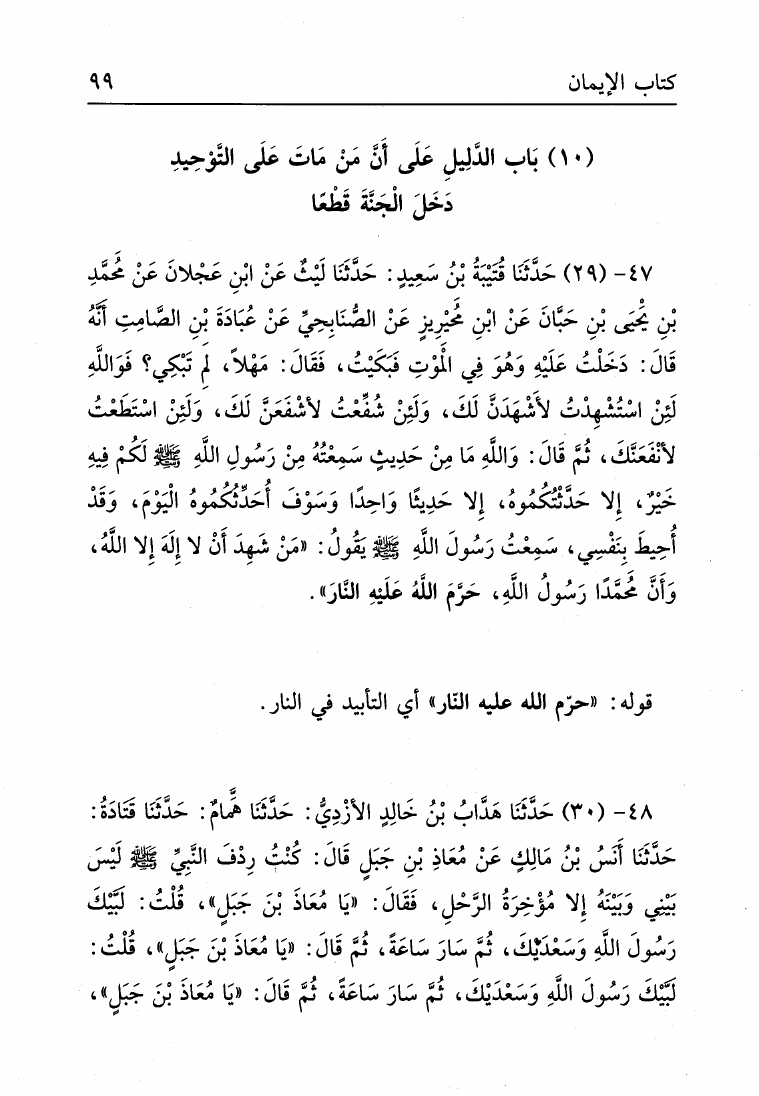 كتاب الإيمان ٩٩
(١٠) بَاب الدَّلِيلِ عَلَى أَنَّ مَنْ مَاتَ عَلَى التَّوْحِيدِ
دَخَلَ الْجَنَّةَ قَطْعًا
٤٧- (٢٩) حَدَّثَنَا قُتَيْبَةُ بْنُ سَعِيدٍ: حَدَّثَنَا لَيْثٌ عَنْ ابْنِ عَجْلانَ عَنْ مُحَمَّدِ
بْنِ يَحْيَى بْنِ حَبَّانَ عَنْ ابْنِ مُحَيْرِيزٍ عَنْ الصُّنَابِحِيِّ عَنْ عُبَادَةَ بْنِ الصَّامِتِ أَنَّهُ
قَالَ: دَخَلْتُ عَلَيْهِ وَهُوَ فِي الْمَوْتِ فَبَكَيْتُ، فَقَالَ: مَهْلاً، لِمَ تَبْكِي؟ فَوَاللَّهِ
لَئِنْ اسْتُشْهِدْتُ لأَشْهَدَنَّ لَكَ، وَلَئِنْ شُفِّعْتُ لأَشْفَعَنَّ لَكَ، وَلَئِنْ اسْتَطَعْتُ
لأَنْفَعَنَّكَ، ثُمَّ قَالَ: وَاللَّهِ مَا مِنْ حَدِيثٍ سَمِعْتُهُ مِنْ رَسُولِ اللَّهِ ﷺ لَكُمْ فِيهِ
خَيْرٌ، إِلا حَدَّثْتُكُمُوهُ، إِلا حَدِيثًا وَاحِدًا وَسَوْفَ أُحَدِّثُكُمُوهُ الْيَوْمَ، وَقَدْ
أُحِيطَ بِنَفْسِي، سَمِعْتُ رَسُولَ اللَّهِ ﷺ يَقُولُ: «مَنْ شَهِدَ أَنْ لا إِلَهَ إِلا اللَّهُ،
وَأَنَّ مُحَمَّدًا رَسُولُ اللَّهِ، حَرَّمَ اللَّهُ عَلَيْهِ النَّارَ».
قوله: «حرّم الله عليه النّار» أي التأبيد في النار.
٤٨- (٣٠) حَدَّثَنَا هَدَّابُ بْنُ خَالِدٍ الأَزْدِيُّ: حَدَّثَنَا هَمَّامٌ: حَدَّثَنَا قَتَادَةُ:
حَدَّثَنَا أَنَسُ بْنُ مَالِكٍ عَنْ مُعَاذِ بْنِ جَبَلٍ قَالَ: كُنْتُ رِدْفَ النَّبِيِّ ﷺ لَيْسَ
بَيْنِي وَبَيْنَهُ إِلا مُؤْخِرَةُ الرَّحْلِ، فَقَالَ: «يَا مُعَاذَ بْنَ جَبَلٍ»، قُلْتُ: لَبَّيْكَ
رَسُولَ اللَّهِ وَسَعْدَيْكَ، ثُمَّ سَارَ سَاعَةً، ثُمَّ قَالَ: «يَا مُعَاذَ بْنَ جَبَلٍ»، قُلْتُ:
لَبَّيْكَ رَسُولَ اللَّهِ وَسَعْدَيْكَ، ثُمَّ سَارَ سَاعَةً، ثُمَّ قَالَ: «يَا مُعَاذَ بْنَ جَبَلٍ»،